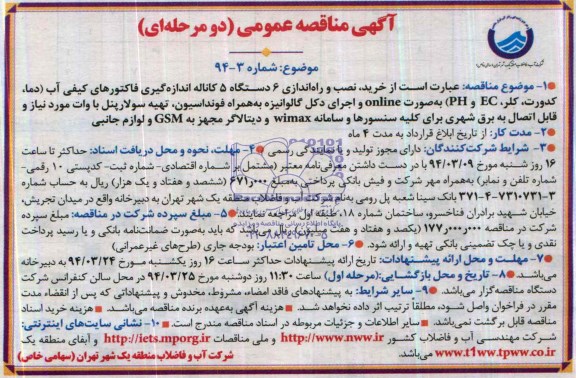 آگهی مناقصه عمومی (دو مرحله‌ای)
موضوع: شماره ۳-۹۴
۱- موضوع مناقصه: عبارت است از خرید، نصب و راه‌اندازی ۶ دستگاه ۵ کاناله اندازه‌گیری فاکتورهای کیفی آب (دما،
کدورت، کلر، EC و PH) به‌صورت online و اجرای دکل گالوانیزه به‌همراه فونداسیون، تهیه سولارپنل با وات مورد نیاز و
قابل اتصال به برق شهری برای کلیه سنسورها و سامانه wimax و دیتالاگر مجهز به GSM و لوازم جانبی
۲- مدت کار: از تاریخ ابلاغ قرارداد به مدت ۴ ماه
۳- شرایط شرکت‌کنندگان: دارای مجوز تولید و یا نمایندگی رسمی ۴- مهلت، نحوه و محل دریافت اسناد: حداکثر تا ساعت
۱۶ روز شنبه مورخ ۹۴/۰۳/۰۹ با در دست داشتن معرفی‌نامه معتبر (مشتمل بر شماره اقتصادی- شماره ثبت- کدپستی ۱۰ رقمی-
شماره تلفن و نمابر) به‌همراه مهر شرکت و فیش بانکی پرداختی به‌مبلغ ۶۷۱٫۰۰۰ (ششصد و هفتاد و یک هزار) ریال به حساب شماره
۳-۷۳۱-۷۳۱۰-۴-۳۷۱ بانک سینا شعبه پل رومی به‌نام شرکت آب و فاضلاب منطقه یک شهر تهران به دبیرخانه واقع در میدان تجریش،
خیابان شهید برادران فناخسرو، ساختمان شماره ۱۸، طبقه اول مراجعه نمایند. ۵- مبلغ سپرده شرکت در مناقصه: مبلغ سپرده
شرکت در مناقصه ۱۷۷٫۰۰۰٫۰۰۰ (یکصد و هفتاد و هفت میلیون) ریال می‌باشد که باید به‌صورت ضمانت‌نامه بانکی و یا رسید پرداخت
نقدی و یا چک تضمینی بانکی تهیه و ارائه شود. ۶- محل تامین اعتبار: بودجه جاری (طرح‌های غیرعمرانی)
۷- مهلت و محل ارائه پیشنهادات: تاریخ ارائه پیشنهادات حداکثر ساعت ۱۶ روز یکشنبه مورخ ۹۴/۰۳/۲۴ به دبیرخانه
می‌باشد. ۸- تاریخ و محل بازگشایی: (مرحله اول) ساعت ۱۱:۳۰ روز دوشنبه مورخ ۹۴/۰۳/۲۵ در محل سالن کنفرانس شرکت
دستگاه مناقصه‌گزار می‌باشد. ۹- سایر شرایط: به پیشنهادهای فاقد امضاء، مشروط، مخدوش و پیشنهاداتی که پس از انقضاء مدت
مقرر در فراخوان واصل شود، مطلقاً ترتیب اثر داده نخواهد شد. هزینه آگهی به‌عهده برنده مناقصه می‌باشد. هزینه خرید اسناد
مناقصه قابل برگشت نمی‌باشد. سایر اطلاعات و جزئیات مربوطه در اسناد مناقصه مندرج است. ۱۰- نشانی سایت‌های اینترنتی:
شرکت مهندسی آب و فاضلاب کشور http://www.nww.ir و ملی مناقصات http://iets.mporg.ir و آبفای منطقه یک
www.t1ww.tpww.co.ir می‌باشد. شرکت آب و فاضلاب منطقه یک شهر تهران (سهامی خاص)